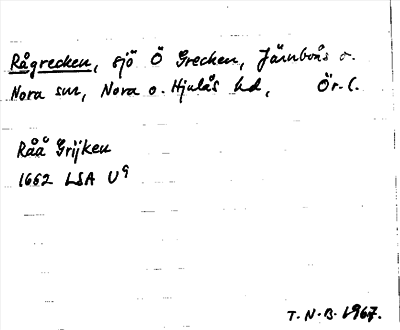 Rågrecken, sjö Ö Grecken, Järnboås o.
Nora snr, Nora o. Hjulsjö hd, Ör. l.
Råå Grijken
1662 LSA U9
T.N.B. 1967.